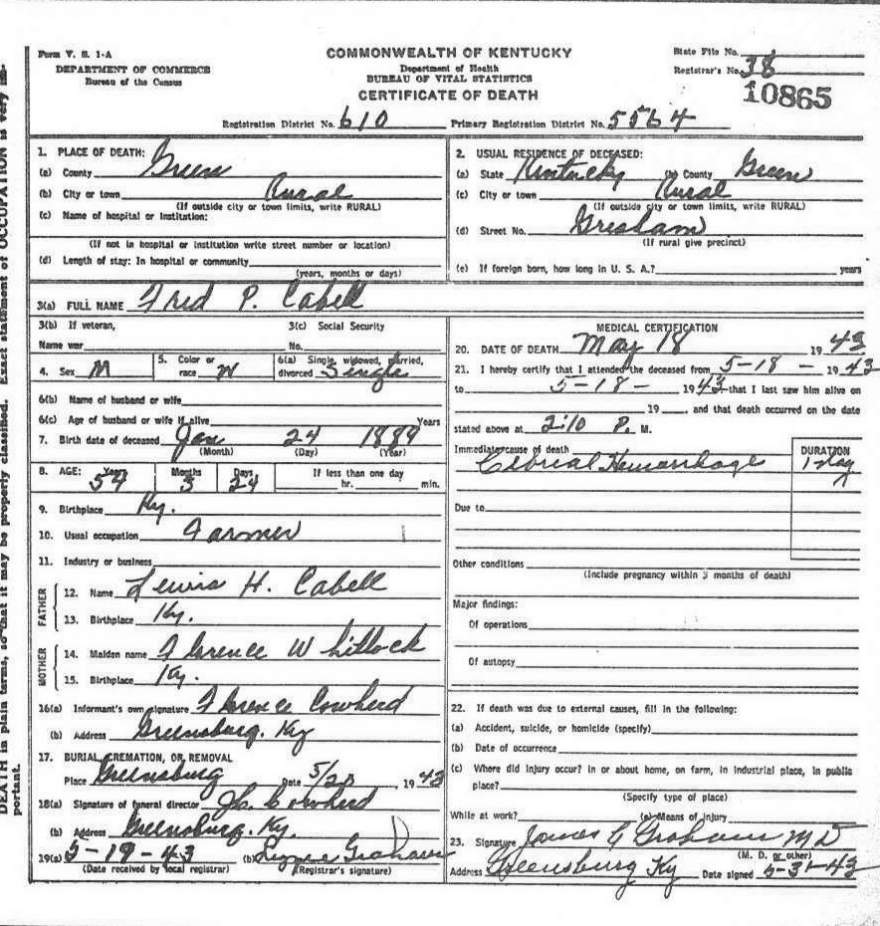 Form V. S. 1-A
DEPARTMENT OF COMMERCE
Bureau of the Census
COMMONWEALTH OF KENTUCKY
Department of Health
BUREAU OF VITAL STATISTICS
CERTIFICATE OF DEATH
State File No.
Registrar's No. 38
10865
Registration District No. 610 Primary Registration District No. 5564
1. PLACE OF DEATH:
(a) County Green
(b) City or town Rural
(If outside city or town limits, write RURAL)
(c) Name of hospital or institution:
(If not in hospital or institution write street number or location)
(d) Length of stay: In hospital or community
(years, months or days)
2. USUAL RESIDENCE OF DECEASED:
(a) State Kentucky (b) County Green
(c) City or town Rural
(If outside city or town limits, write RURAL)
(d) Street No. Gresham
(If rural give precinct)
(e) If foreign born, how long in U. S. A.? years
3(a) FULL NAME Fred P. Cabell
3(b) If veteran, 3(c) Social Security
Name war No.
4. Sex M 5. Color or race W 6(a) Single, widowed, married, divorced Single
6(b) Name of husband or wife
6(c) Age of husband or wife if alive Years
7. Birth date of deceased Jan 24 1889
(Month) (Day) (Year)
8. AGE: Years Months Days If less than one day
54 3 24 hr. min.
9. Birthplace Ky.
10. Usual occupation Farmer
11. Industry or business
FATHER
12. Name Lewis H. Cabell
13. Birthplace Ky.
MOTHER
14. Maiden name Florence Whitlock
15. Birthplace Ky.
16(a) Informant's own signature Florence Cowherd
(b) Address Greensburg. Ky
17. BURIAL, CREMATION, OR REMOVAL
Place Greensburg Date 5/20 1943
18(a) Signature of funeral director Cowherd
(b) Address Greensburg. Ky.
19(a) 5-19-43 (b) Graham
(Date received by local registrar) (Registrar's signature)
MEDICAL CERTIFICATION
20. DATE OF DEATH May 18 1943
21. I hereby certify that I attended the deceased from 5-18- 1943
to 5-18- 1943 that I last saw him alive on
19 , and that death occurred on the date
stated above at 2:10 P. M.
Immediate cause of death DURATION
Cebrial Hemorrhage 1 day
Due to
Other conditions
(Include pregnancy within 3 months of death)
Major findings:
Of operations
Of autopsy
22. If death was due to external causes, fill in the following:
(a) Accident, suicide, or homicide (specify)
(b) Date of occurrence
(c) Where did injury occur? In or about home, on farm, in industrial place, in public
place?
(Specify type of place)
While at work? (e) Means of injury
23. Signature James C Graham MD
(M. D. or other)
Address Greensburg Ky Date signed 5-31-43
DEATH in plain terms, so that it may be properly classified. Exact statement of OCCUPATION is very im-
portant.